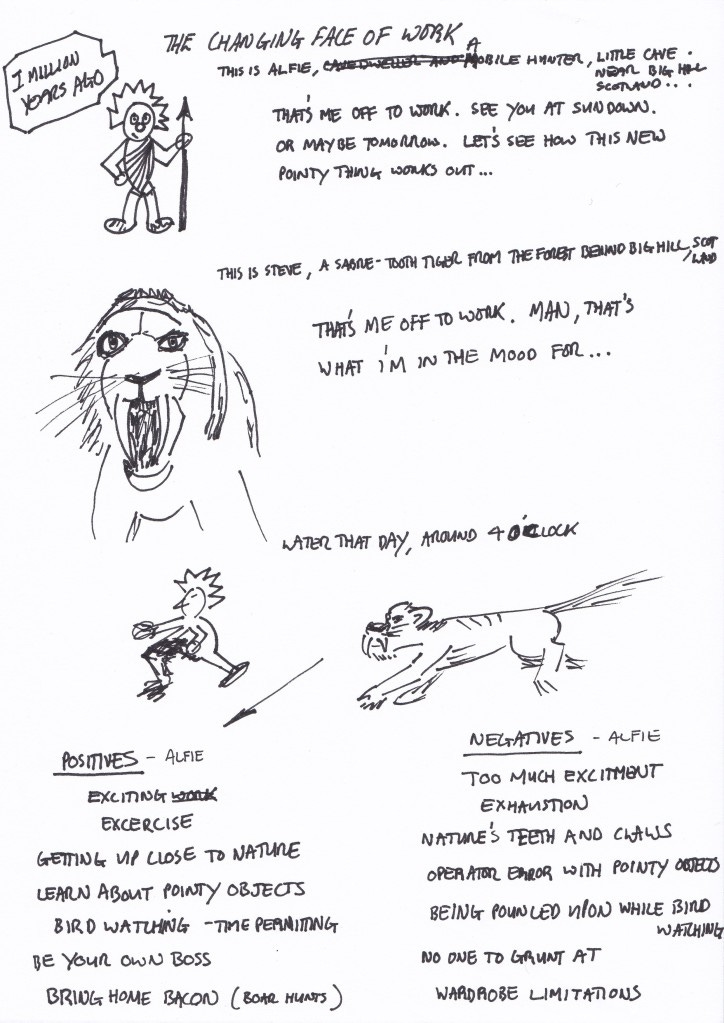 THE CHANGING FACE OF WORK
1 MILLION
YEARS AGO
THIS IS ALFIE, CAVE DWELLER AND A MOBILE HUNTER, LITTLE CAVE.
NEAR BIG HILL
SCOTLAND...
THAT'S ME OFF TO WORK. SEE YOU AT SUNDOWN.
OR MAYBE TOMORROW. LET'S SEE HOW THIS NEW
POINTY THING WORKS OUT...
THIS IS STEVE, A SABRE-TOOTH TIGER FROM THE FOREST BEHIND BIG HILL, SCOT
LAND
THAT'S ME OFF TO WORK. MAN, THAT'S
WHAT I'M IN THE MOOD FOR...
LATER THAT DAY, AROUND 4 O'CLOCK
POSITIVES - ALFIE
EXCITING WORK
EXCERCISE
GETTING UP CLOSE TO NATURE
LEARN ABOUT POINTY OBJECTS
BIRD WATCHING - TIME PERMITTING
BE YOUR OWN BOSS
BRING HOME BACON (BOAR HUNTS)
NEGATIVES - ALFIE
TOO MUCH EXCITMENT
EXHAUSTION
NATURE'S TEETH AND CLAWS
OPERATOR ERROR WITH POINTY OBJECTS
BEING POUNCED UPON WHILE BIRD
WATCHING
NO ONE TO GRUNT AT
WARDROBE LIMITATIONS